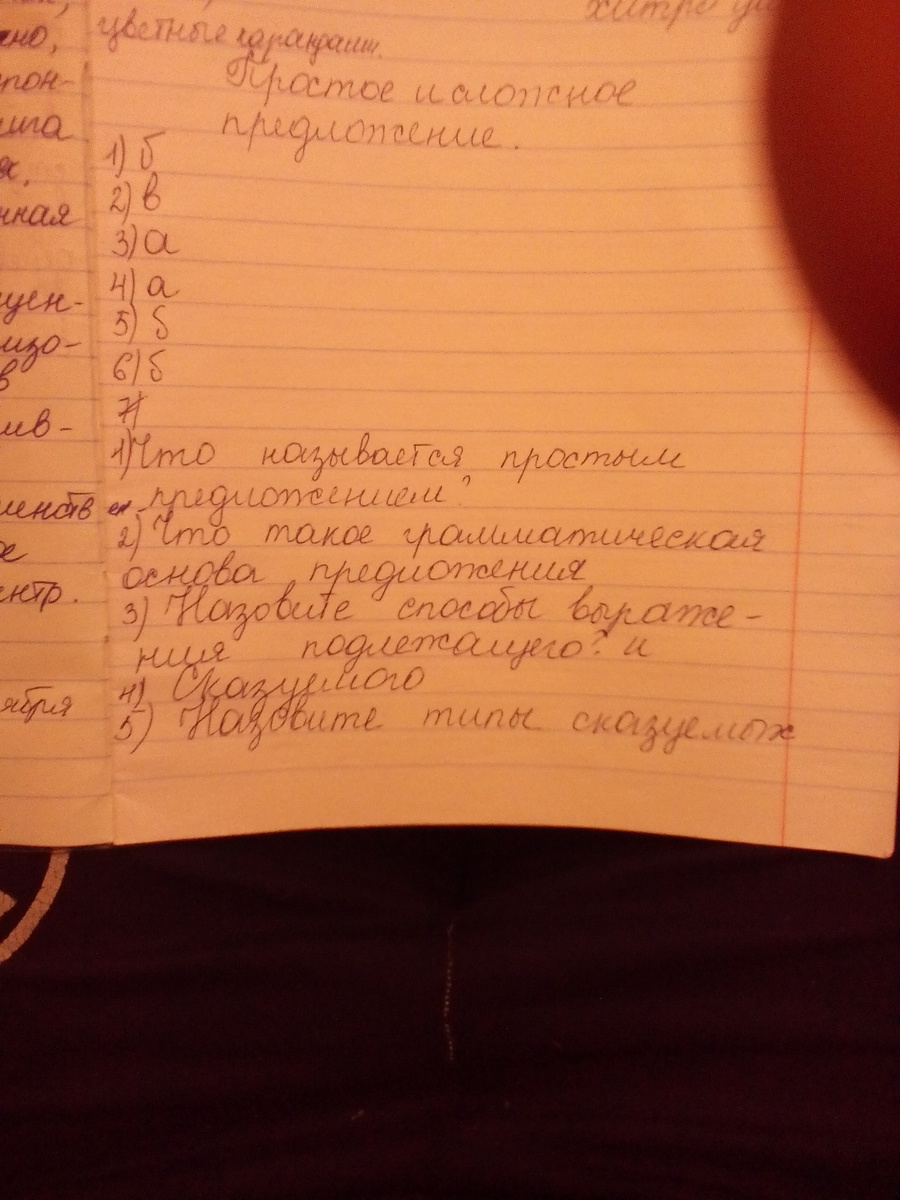 но,
цветные карандаши.
Простое и сложное
предложение.
1) б
2) в
3) а
4) а
5) б
6) б
7)
1) Что называется простым
предложением?
2) Что такое грамматическая
основа предложения
3) Назовите способы выраже-
ния подлежащего? и
4) Сказуемого
5) Назовите типы сказуемых
нная
цен-
изо-
в
ив-
ября